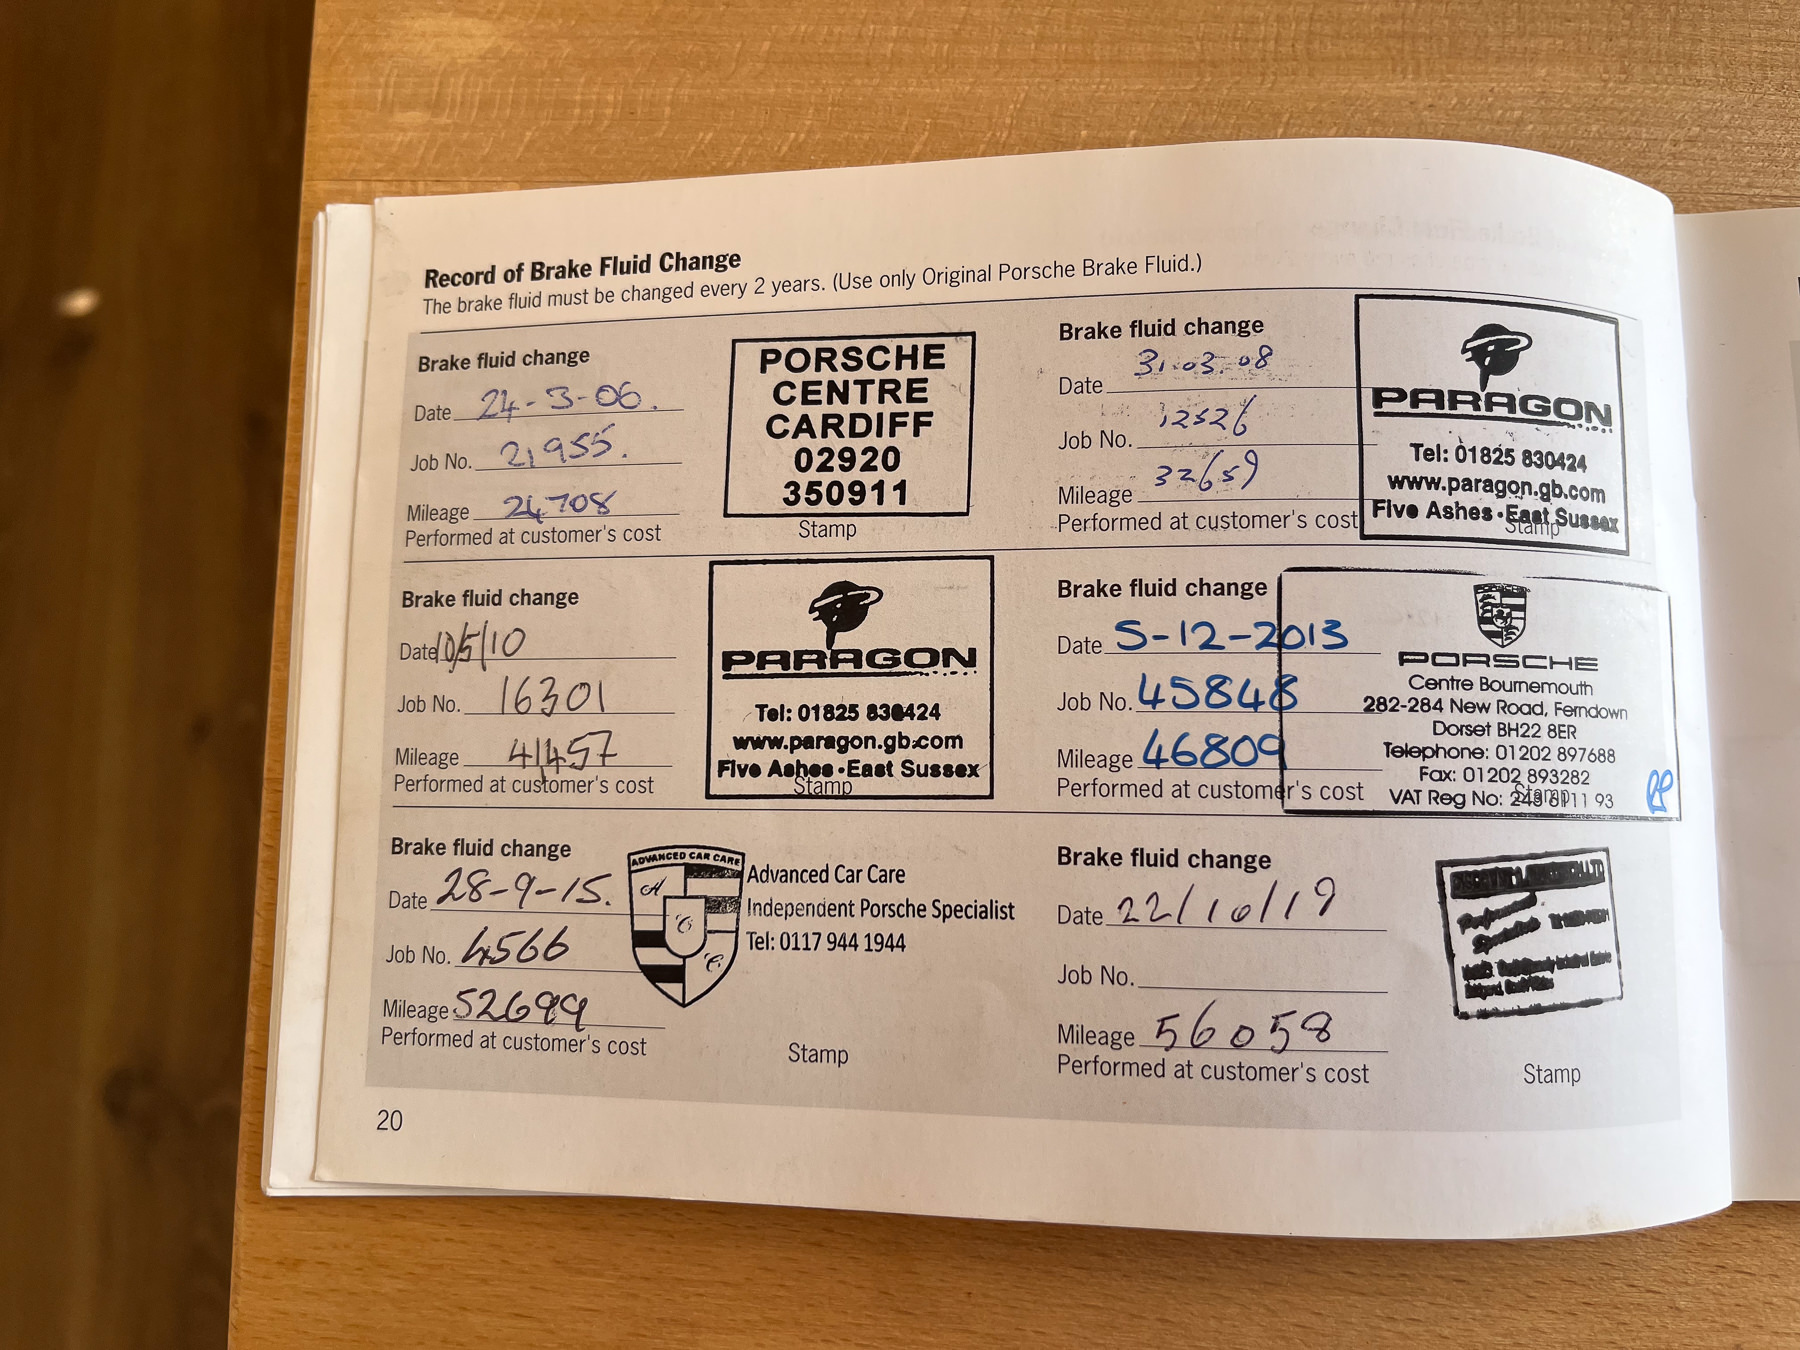 Record of Brake Fluid Change
The brake fluid must be changed every 2 years. (Use only Original Porsche Brake Fluid.)
Brake fluid change
Date 24-3-06.
Job No. 21955.
Mileage 24708
Performed at customer's cost
PORSCHE
CENTRE
CARDIFF
02920
350911
Stamp
Brake fluid change
Date 31.03.08
Job No. 12526
Mileage 32659
Performed at customer's cost
PARAGON
Tel: 01825 830424
www.paragon.gb.com
Five Ashes • East Sussex
Stamp
Brake fluid change
Date 10/5/10
Job No. 16301
Mileage 41457
Performed at customer's cost
PARAGON
Tel: 01825 830424
www.paragon.gb.com
Five Ashes • East Sussex
Stamp
Brake fluid change
Date 5-12-2013
Job No. 45848
Mileage 46809
Performed at customer's cost
PORSCHE
Centre Bournemouth
282-284 New Road, Ferndown
Dorset BH22 8ER
Telephone: 01202 897688
Fax: 01202 893282
VAT Reg No:
Stamp
Brake fluid change
Date 28-9-15.
Job No. 4566
Mileage 52699
Performed at customer's cost
ADVANCED CAR CARE
A
C
C
Advanced Car Care
Independent Porsche Specialist
Tel: 0117 944 1944
Stamp
Brake fluid change
Date 22/10/19
Job No.
Mileage 56058
Performed at customer's cost
Stamp
20